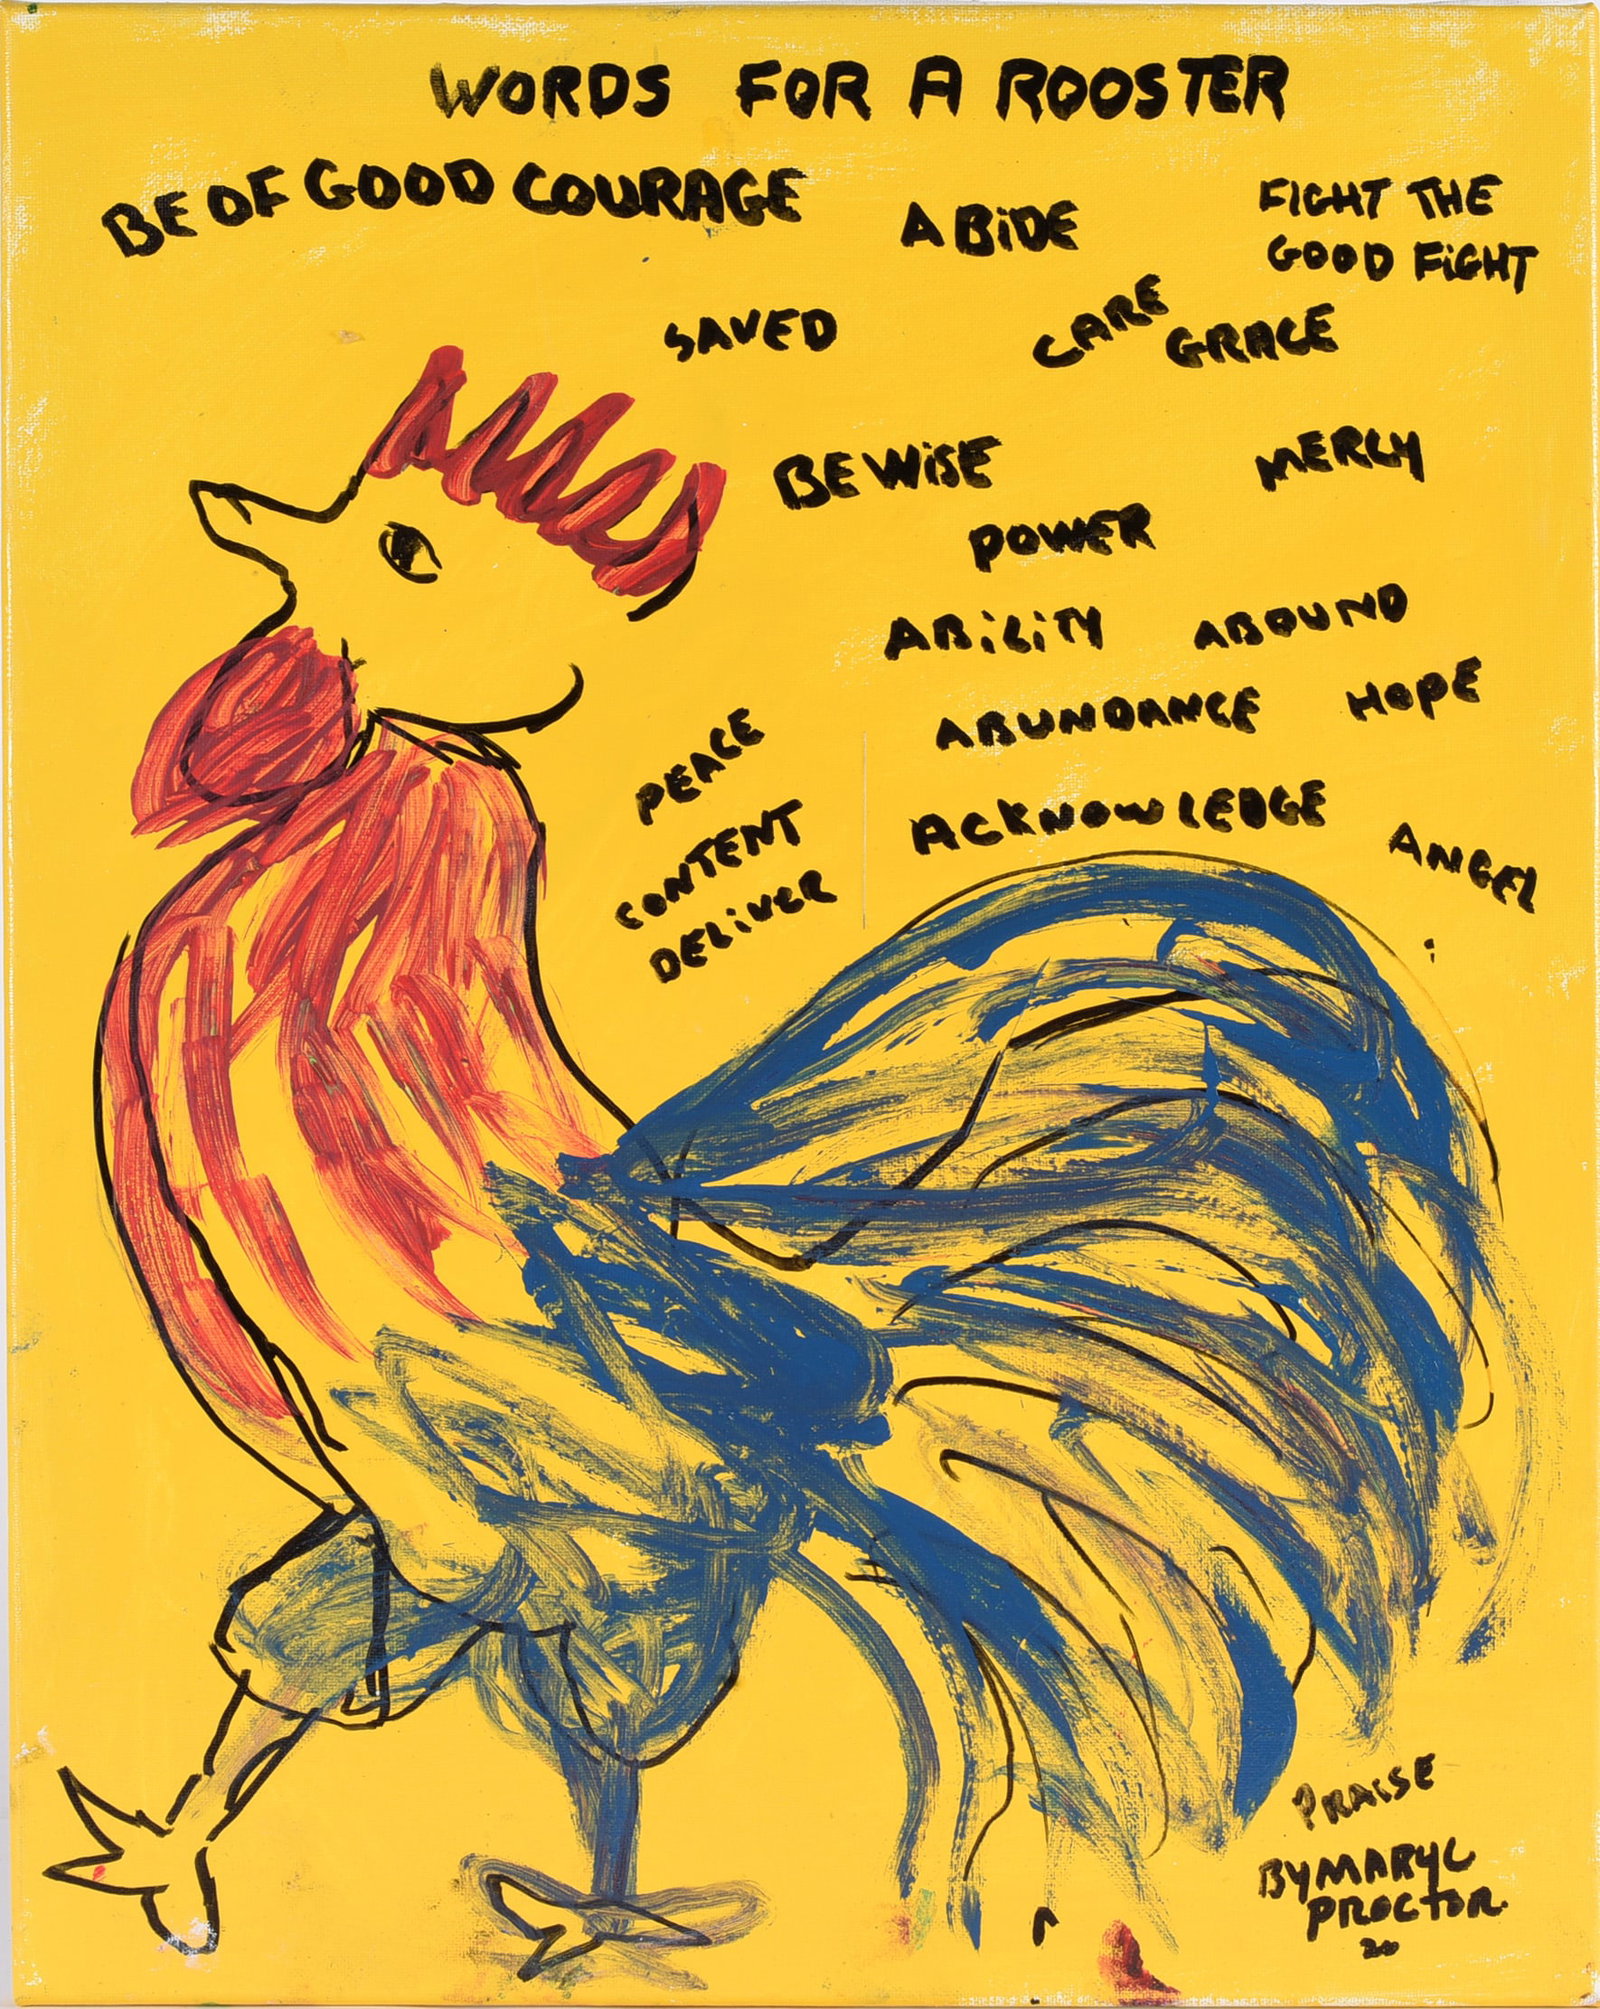 WORDS FOR A ROOSTER
BE OF GOOD COURAGE
ABiDE
FIGHT THE
GOOD FiGHT
SAVED
CARE
GRACE
BE WiSE
MERCY
POWER
ABiLiTY
ABOUND
ABUNDANCE
HOPE
PEACE
CONTENT
DELiVER
ACKNOWLEDGE
ANGEL
PRAISE
BY MARY L
PROCTOR
20